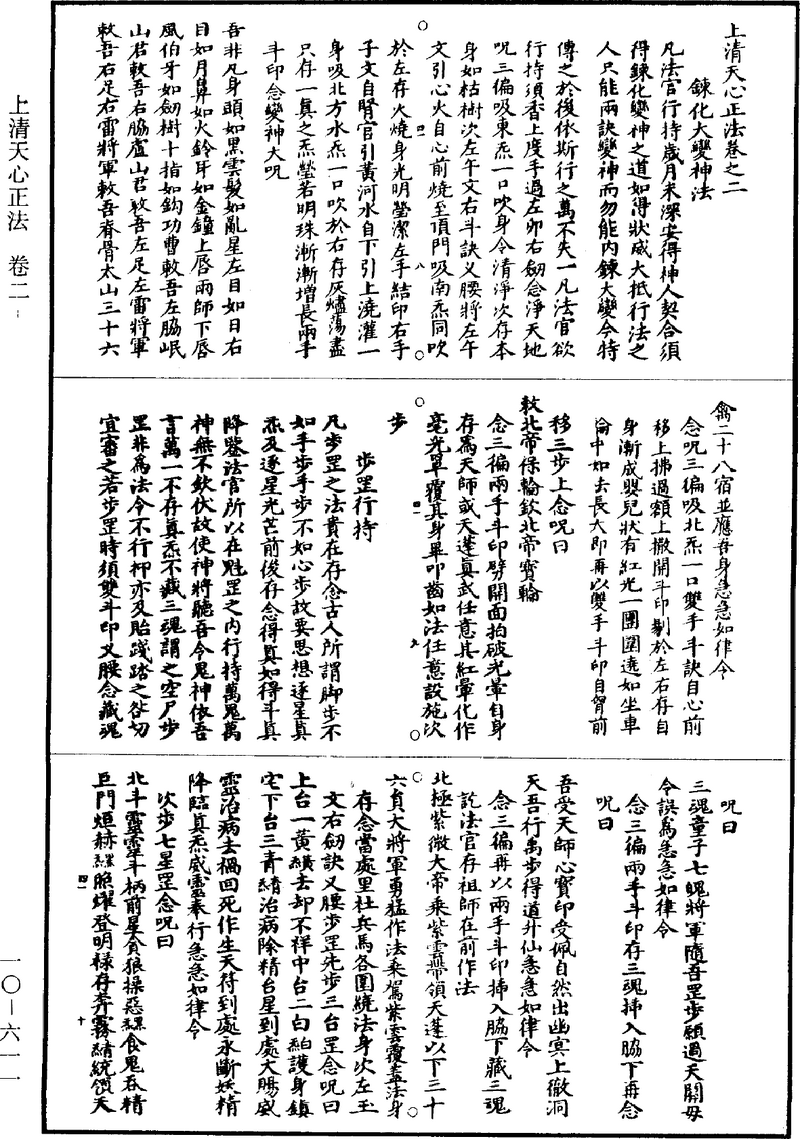 上清天心正法卷之二
鍊化大變神法
凡法官行持歲月未深安得神人契合須
得鍊化變神之道如得狀威大抵行法之
人只能兩訣變神而勿能內鍊大變今特
傳之於後依斯行之萬不失一凡法官欲
行持須香上度手過左卯右劒念淨天地
呪三徧吸東炁一口吹身令清淨次存本
身如枯樹次左午文右斗訣叉腰將左午
文引心火自心前燒至頂門吸南炁同吹
於左存火燒身光明瑩潔左手結印右手
子文自腎宮引黃河水自下引上澆灌一
身吸北方水炁一口吹於右存灰燼蕩盡
只存一真之炁瑩若明珠漸漸增長兩手
斗印念變神大呪
吾非凡身頭如黑雲髮如亂星左目如日右
目如月鼻如火鈴牙如金鐘上唇雨師下唇
風伯牙如劒樹十指如鈎功曹敕吾左脇岷
山君敕吾右脇廬山君敕吾左足左雷將軍
敕吾右足右雷將軍敕吾脊骨太山三十六
禽二十八宿並應吾身急急如律令
念呪三徧吸北炁一口雙手斗訣自心前
移上拂過額上撒開斗印剔於左右存自
身漸成嬰兒狀有紅光一團圍遶如坐車
輪中如去長大即再以雙手斗印自胷前
移三步上念呪曰
敕北帝保輪欽北帝寳輪
念三徧兩手斗印劈開面拍破光暈自身
存爲天師或天蓬真武任意其紅暈化作
亳光罩覆其身畢叩齒如法任意設施次
步
步罡行持
凡步罡之法貴在存念古人所謂脚步不
如手步手步不如心步故要思想逐星真
炁及逐星光芒前後存念得真如得斗真
降鑒法官所以在魁罡之內行持萬鬼萬
神無不欽伏故使神將聽吾令鬼神依吾
言萬一不存真炁不藏三魂謂之空尸步
罡非爲法令不行抑亦及貽踐踏之咎切
宜審之若步罡時須雙斗印叉腰念藏魂
呪曰
三魂童子七魄將軍隨吾罡步願過天關毋
令誤爲急急如律令
念三徧兩手斗印存三魂挿入脇下再念
呪曰
吾受天師心寳印受佩自然出幽冥上徹洞
天吾行禹步得道升仙急急如律令
念三徧再以兩手斗印挿入脇下藏三魂
訖法官存祖師在前作法
北極紫微大帝乘紫雲帶領天蓬以下三十
六負大將軍勇猛作法乘駕紫雲覆蓋法身
存念當處里社兵馬各圍繞法身次左玉
文右劒訣叉腰步罡先步三台罡念呪曰
上台一黃纊去却不祥中台二白紿護身鎮
宅下台三青綪治病除精台星到處大賜威
靈治病去禍回死作生天符到處永斷妖精
降臨真炁威靈奉行急急如律令
次步七星罡念呪曰
北斗靈靈斗柄前星貪狼操惡祿食鬼吞精
巨門烜赫祿照燿登明祿存奔霧綪統領天
上清天心正法　卷二
一〇－六一一